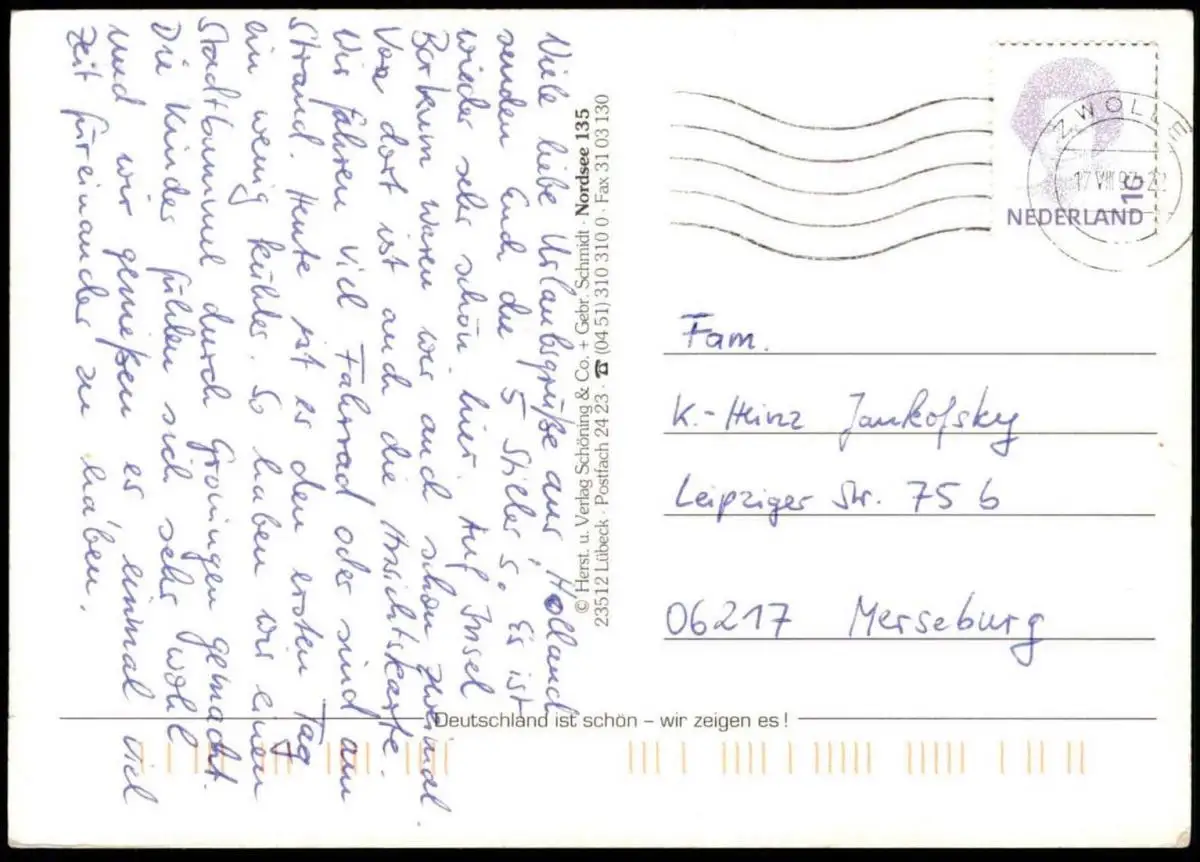 Viele liebe Urlaubsgrüße aus Holland
senden Euch die 5 s. Es ist
wieder sehr schön hier. Auf Insel
Borkum waren wir auch schon zweimal.
Von dort ist auch die Ansichtskarte.
Wir fahren viel Fahrrad oder sind am
Strand. Heute ist es den ersten Tag
ein wenig kühler. So haben wir einen
Stadtbummel durch Groningen gemacht.
Die Kinder fühlen sich sehr wohl
und wir genießen es einmal viel
Zeit füreinander zu haben.
© Herst. u. Verlag Schöning & Co. + Gebr. Schmidt · Nordsee 135
23512 Lübeck · Postfach 24 23 · ☎ (04 51) 310 310 0 · Fax 31 03 130
ZWOLLE
17 VIII 97-22
NEDERLAND
Fam.
K.-Heinz Jankofsky
Leipziger Str. 75 b
06217 Merseburg
Deutschland ist schön – wir zeigen es!